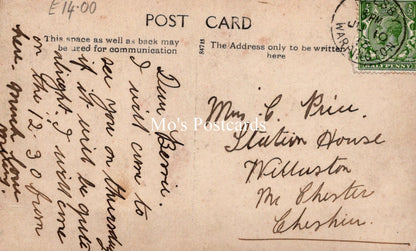 £14.00
POST CARD
This space as well as back may
be used for communication
The Address only to be written
here
Dear Bernie.
I will come to
see you on thursday
if it will be quite
alright I will come
on the 12.30 from
here. much love
Mrs C. Price.
Station House
Willaston
Nr Chester
Cheshire
Mo's Postcards
HALFPENNY